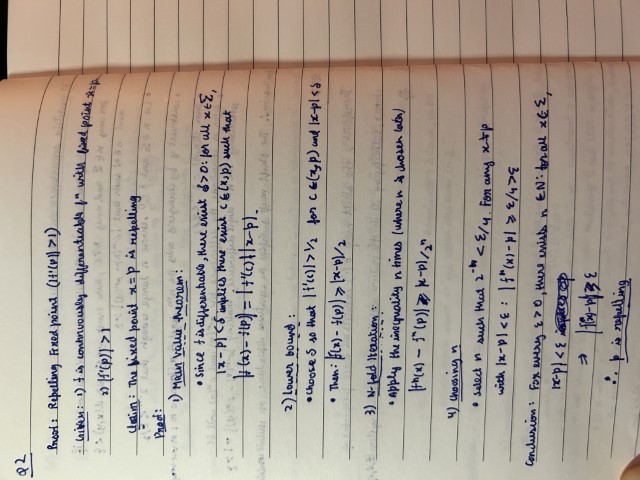 Q2
Proof: Repelling Fixed point (|f'(p)| > 1)
Given: 1) f is continuously differentiable fⁿ with fixed point x=p.
2) |f'(p)| > 1
Claim: The fixed point x = p is repelling
Proof:
1) Mean Value theorem:
• Since f is differentiable, there exist δ>0: for all x∈Σ,
|x-p| < δ implies there exist c∈(x,p) such that
|f(x) - f(p)| = |f'(c)| |x-p|.
2) Lower bound:
• Choose δ so that |f'(c)| > 1/2 for c∈(x,p) and |x-p| < δ
• Then: |f(x) - f(p)| ≥ |x-p|/2
3) N-fold iteration:
• Apply the inequality n times (where n is chosen later)
|fⁿ(x) - fⁿ(p)| ≥ |x-p|/2ⁿ
4) Choosing n
• select n such that 2⁻ⁿ < ε/4. For any x≠p
with |x-p| < ε : |fⁿ(x)-p| ≥ ε/4 > ε
Conclusion: For every ε>0, there exists n ∈N: for all x∈Σ,
|x-p| < ε
⇒ |fⁿ(x)-p| ≥ ε
∴ p is repelling